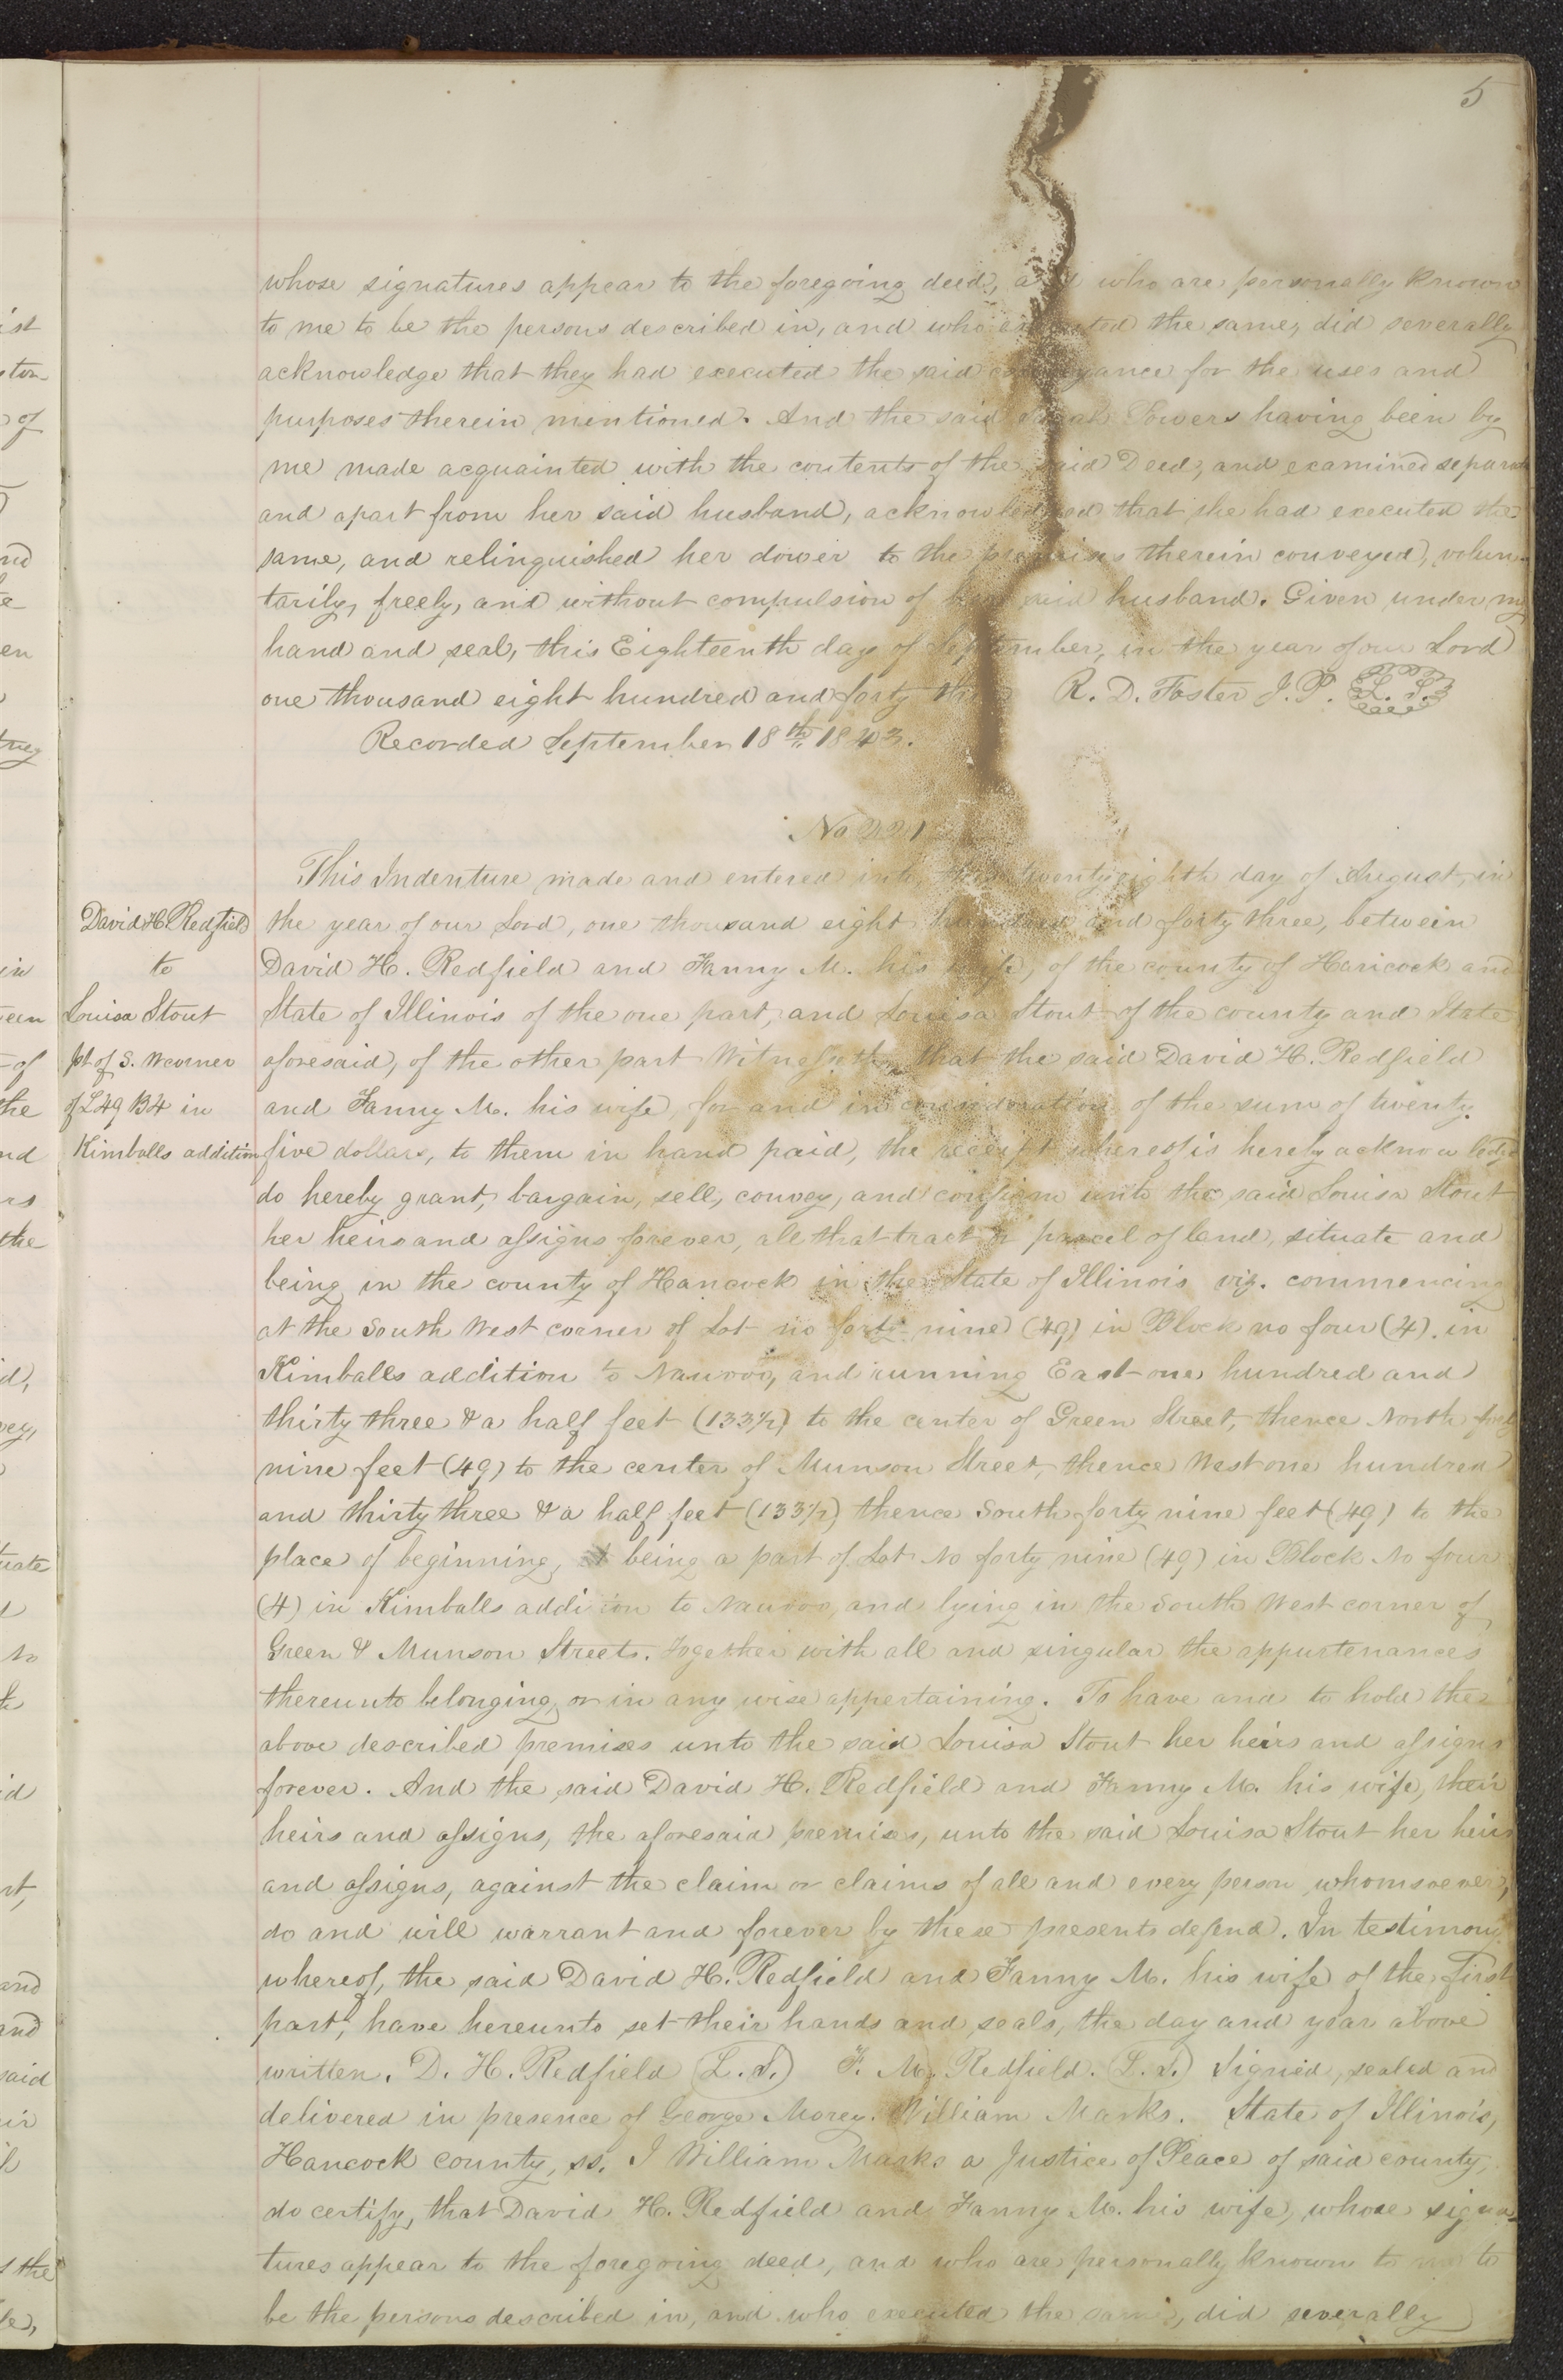 5
whose signatures appear to the foregoing deed, who are personally known
to me to be the persons described in, and who the same, did severally
acknowledge that they had executed the said for the uses and
purposes therein mentioned. And the said Powers having been by
me made acquainted with the contents of the said Deed, and examined separate
and apart from her said husband, acknowledged that she had executed the
same, and relinquished her dower to the premises therein conveyed, volun-
tarily, freely, and without compulsion of said husband. Given under my
hand and seal, this Eighteenth day of September, in the year of our Lord
one thousand eight hundred and forty R. D. Foster J. P. L. S.
Recorded September 18th 1843.
No 221
This Indenture made and entered into, this twenty eighth day of August, in
David H. Redfield
the year of our Lord, one thousand eight hundred and forty three, between
to
David H. Redfield and Fanny M. his wife, of the county of Hancock and
Louisa Stout
State of Illinois of the one part, and Louisa Stout of the county and State
pt of S. W corner
aforesaid, of the other part Witnesseth, that the said David H. Redfield
of L 49 B4 in
and Fanny M. his wife, for and in consideration of the sum of twenty
Kimballs addition
five dollars, to them in hand paid, the receipt whereof is hereby acknowledged
do hereby grant, bargain, sell, convey, and confirm unto the said Louisa Stout
her heirs and assigns forever, all that tract or parcel of land, situate and
being in the county of Hancock in the State of Illinois viz. commencing
at the South West corner of Lot no forty nine (49) in Block no four (4). in
Kimballs addition to Nauvoo, and running East one hundred and
thirty three & a half feet (133½) to the center of Green Street, thence North forty
nine feet (49) to the center of Munson Street, thence West one hundred
and thirty three & a half feet (133½) thence South forty nine feet (49) to the
place of beginning, it being a part of Lot No forty nine (49) in Block No four
(4) in Kimballs addition to Nauvoo, and lying in the South West corner of
Green & Munson Streets. together with all and singular the appurtenances
thereunto belonging, or in any wise appertaining. To have and to hold the
above described premises unto the said Louisa Stout her heirs and assigns
forever. And the said David H. Redfield and Fanny M. his wife, their
heirs and assigns, the aforesaid premises, unto the said Louisa Stout her heirs
and assigns, against the claim or claims of all and every person whomsoever,
do and will warrant and forever by these presents defend. In testimony
whereof, the said David H. Redfield and Fanny M. his wife of the first
part, have hereunto set their hands and seals, the day and year above
written. D. H. Redfield (L. S.) F. M. Redfield. (L. S.) Signed, sealed and
delivered in presence of George Morey. William Marks. State of Illinois,
Hancock county, ss. I William Marks a Justice of Peace of said county,
do certify, that David H. Redfield and Fanny M. his wife, whose signa-
tures appear to the foregoing deed, and who are personally known to me to
be the persons described in, and who executed the same, did severally